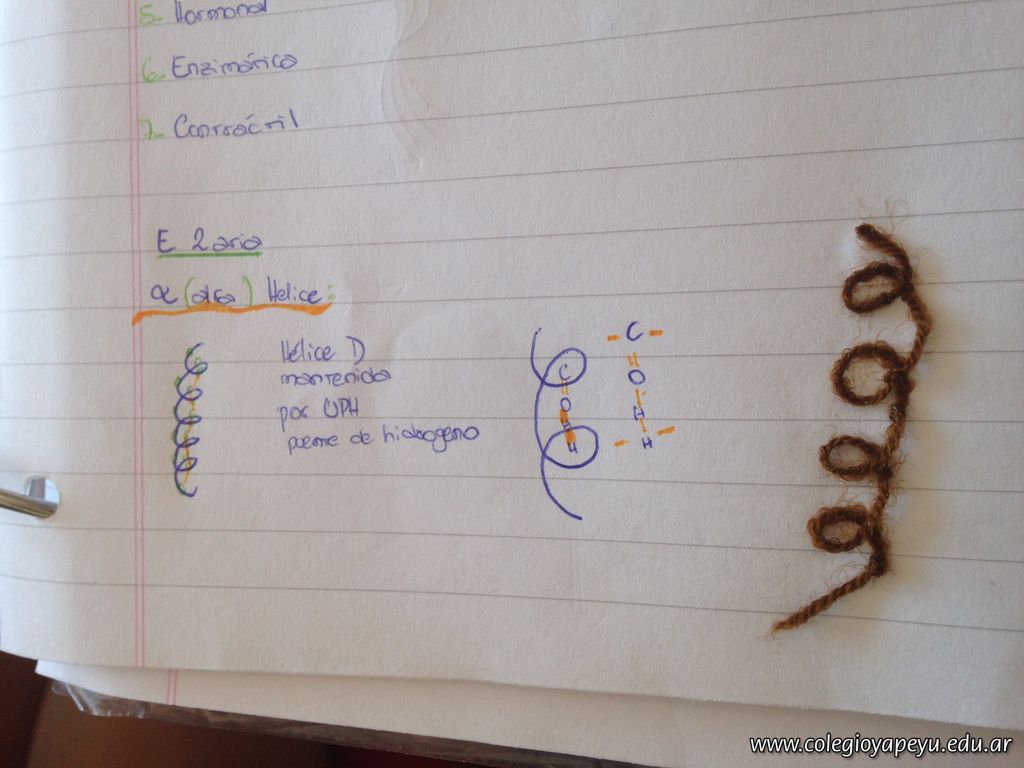 5- Hormonal
6- Enzimática
7- Contráctil
E 2aria
α (alfa) Hélice:
Hélice D
mantenida
por UPH
puente de hidrógeno
C
O
H
H
C
O
H
H
www.colegioyapeyu.edu.ar